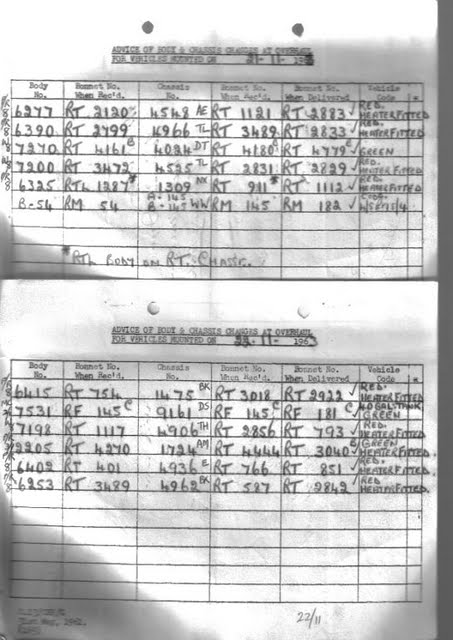 ADVICE OF BODY & CHASSIS CHANGES AT OVERHAUL
FOR VEHICLES MOUNTED ON 21-11- 1963
Body No. Bonnet No. When Rec'd. Chassis No. Bonnet No. When Rec'd. Bonnet No. When Delivered Vehicle Code *
6277 RT 2120 4548 AE RT 1121 RT 2883 ✓ RED. HEATER FITTED
6390 RT 2799 4966 TL RT 3489 RT 2833 ✓ RED. HEATER FITTED
7270 RT 4161 4024 DT RT 4180 RT 4779 ✓ GREEN.
7200 RT 3472 4525 TL RT 2831 RT 2829 ✓ RED. HEATER FITTED
6325 RTL 1287* 1309 NX RT 911* RT 1112 ✓ RED. HEATER FITTED
B-54 RM 54 A-145 B-145 WW RM 145 RM 182 ✓
*RTL BODY ON RT. CHASSE.
ADVICE OF BODY & CHASSIS CHANGES AT OVERHAUL
FOR VEHICLES MOUNTED ON 22-11- 1963
Body No. Bonnet No. When Rec'd. Chassis No. Bonnet No. When Rec'd. Bonnet No. When Delivered Vehicle Code *
6415 RT 754 1475 BK RT 3018 RT 2922 ✓ RED. HEATER FITTED
7531 RF 145 C 9161 DS RF 145 C RF 181 C ✓ GREEN
7198 RT 1117 4906 TH RT 2856 RT 793 ✓ RED. HEATER FITTED
2205 RT 4270 1724 AM RT 4444 RT 3040 ✓ GREEN HEATER FITTED
6402 RT 401 4936 E RT 766 RT 851 ✓ RED. HEATER FITTED
6253 RT 3489 4962 BK RT 587 RT 2842 ✓ RED HEATER FITTED.
31st May, 1962.
22/11